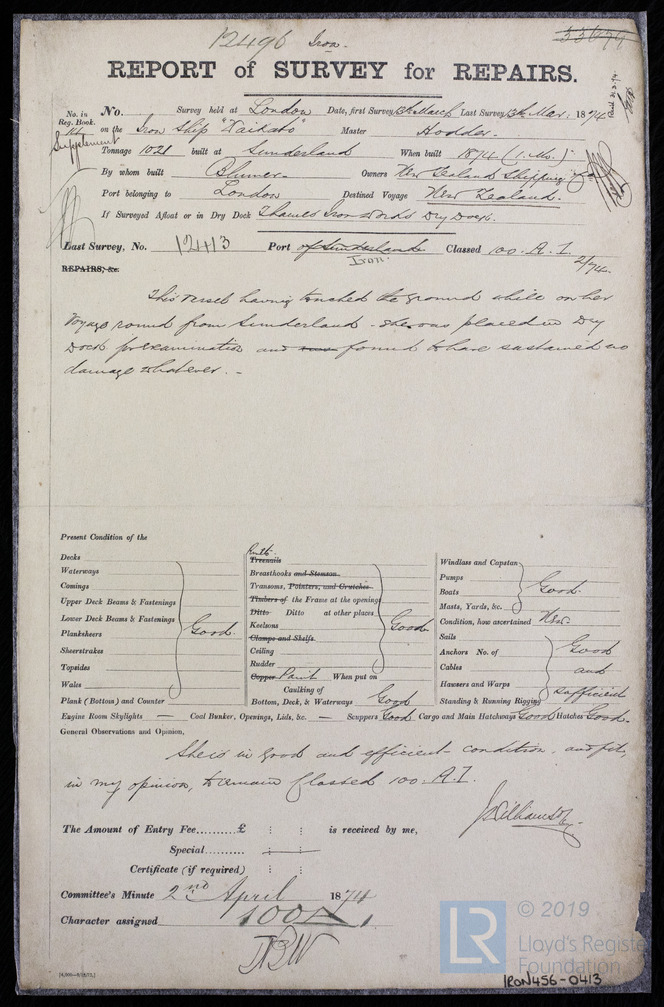 12496 Iron.
33679
REPORT of SURVEY for REPAIRS.
No. in Reg. Book.
Supplement
No. Survey held at London Date, first Survey 13th March Last Survey 13th Mar. 1874
on the Iron Ship "Waikato" Master Hodder.
Tonnage 1021 built at Sunderland When built 1874 (1. Mo.)
By whom built Blumer. Owners New Zealand Shipping Co
Port belonging to London Destined Voyage New Zealand.
If Surveyed Afloat or in Dry Dock Thames Iron Works Dry Dock.
Last Survey, No. 12413 Port of Sunderland Classed 100. A. 1.
Iron. 2/74.
REPAIRS, &c.
This vessel having touched the ground while on her
Voyage round from Sunderland - she was placed in Dry
Dock for examination and was found to have sustained no
damage whatever. -
Present Condition of the
Decks
Waterways
Comings
Upper Deck Beams & Fastenings
Lower Deck Beams & Fastenings
Planksheers Good.
Sheerstrakes
Topsides
Wales
Plank (Bottom) and Counter
Rivets
Treenails
Breasthooks and Stemson
Transoms, Pointers, and Crutches
Timbers of the Frame at the openings
Ditto Ditto at other places
Keelsons Good.
Clamps and Shelfs
Ceiling
Rudder
Copper Paint When put on
Caulking of
Bottom, Deck, & Waterways Good
Windlass and Capstan
Pumps
Boats Good.
Masts, Yards, &c.
Condition, how ascertained New.
Sails
Anchors No. of Good
Cables and
Hawsers and Warps sufficient
Standing & Running Rigging
Engine Room Skylights — Coal Bunker, Openings, Lids, &c. — Scuppers Good. Cargo and Main Hatchways Good Hatches Good.
General Observations and Opinion,
She is in good and efficient condition, and fit,
in my opinion, to remain Classed 100. A. 1.
The Amount of Entry Fee.......... £ : : is received by me,
Special..........
Certificate (if required) : :
Committee's Minute 2nd April 1874
Character assigned 100A1
© 2019
LR
Lloyd's Register
Foundation
IRON456-0413